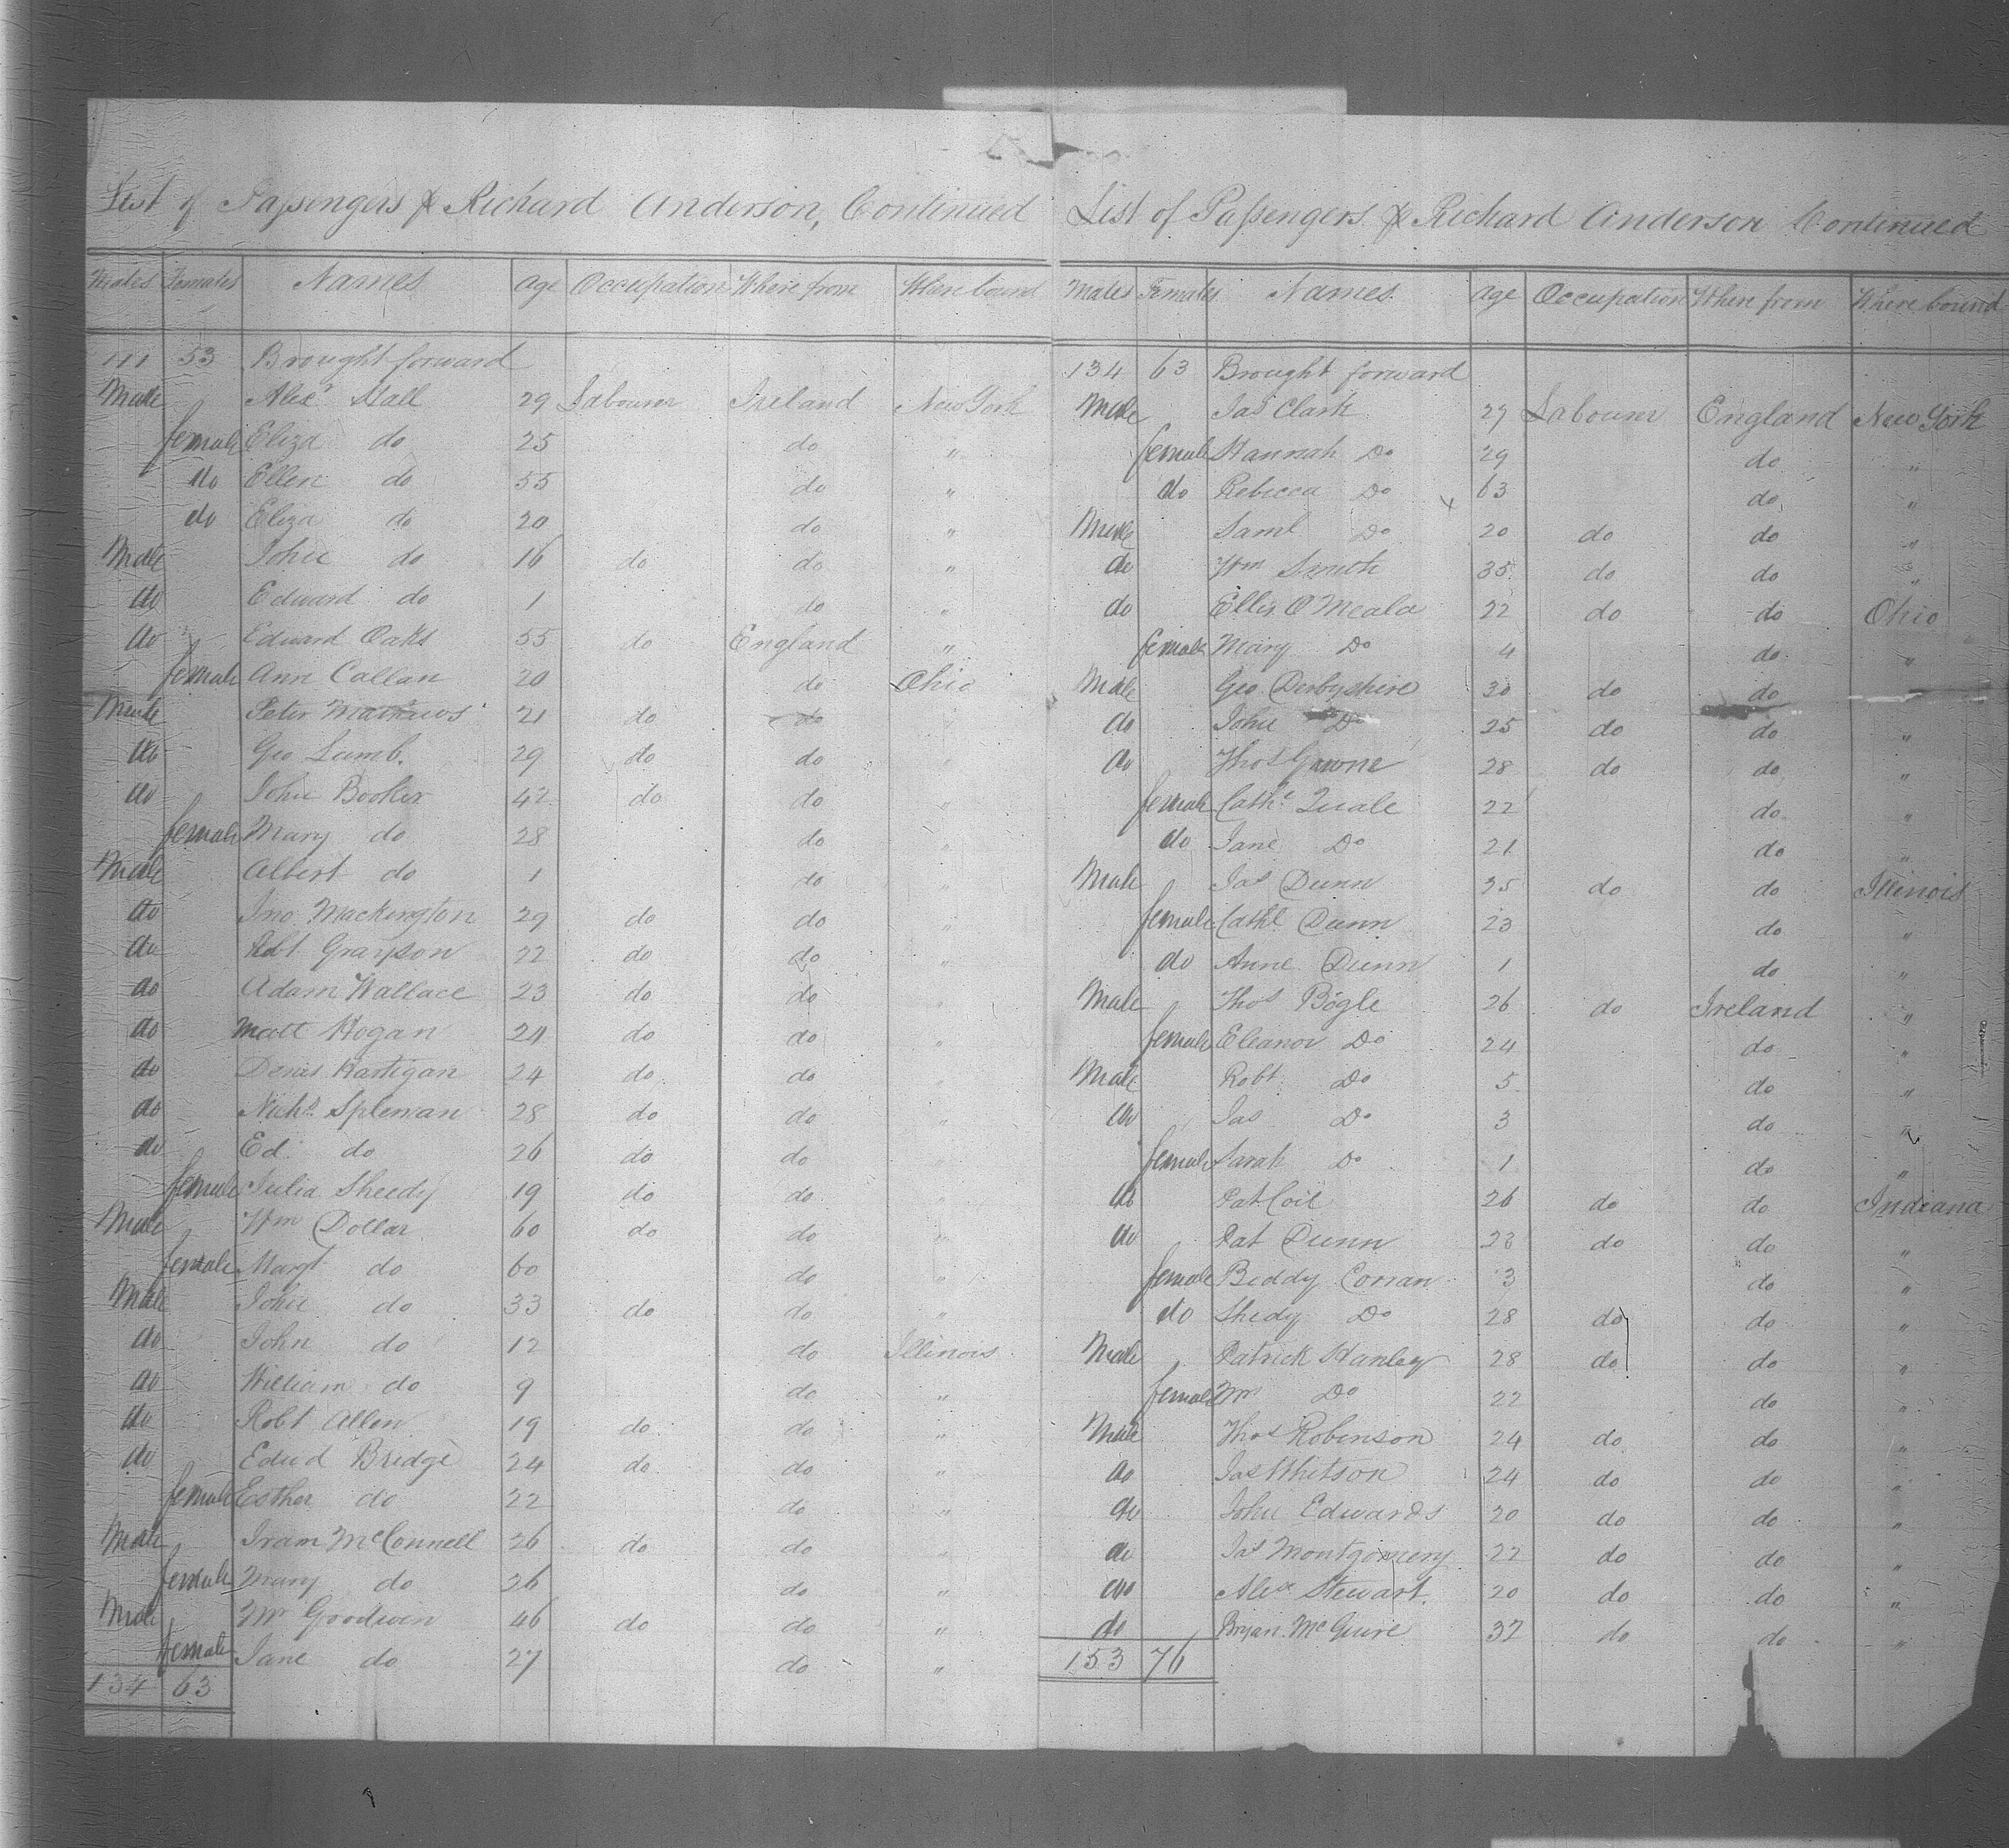 List of Passengers p Richard Anderson, Continued
Males Females Names Age Occupation Where from Where bound
111 53 Brought forward
Male Alexr Hall 29 Labourer Ireland New York
female Eliza do 25 do "
do Ellen do 55 do "
do Eliza do 20 do "
Male John do 16 do do "
do Edward do 1 do "
do Edward Oaks 55 do England "
female Ann Callan 20 do Ohio
Male Peter Mathews 21 do do "
do Geo Lumb. 29 do do "
do John Booker 42 do do "
female Mary do 28 do "
Male Albert do 1 do "
do Jno Mackington 29 do do "
do Robt Grayson 22 do do "
do Adam Wallace 23 do do "
do Matt Hogan 24 do do "
do Denis Hartigan 24 do do "
do Nichs Splenan 28 do do "
do Ed. do 26 do do "
female Julia Sheedy 19 do do "
Male Wm Dollar 60 do do "
female Margt do 60 do "
Male John do 33 do do "
do John do 12 do Illinois
do William do 9 do "
do Robt Allen 19 do do "
do Edwd Bridge 24 do do "
female Esther do 22 do "
Male Iram McConnell 26 do do "
female Mary do 26 do "
Male Mr Goodwin 46 do do "
female Jane do 27 do "
134 63
List of Passengers p Richard Anderson Continued
Males Females Names Age Occupation Where from Where bound
134 63 Brought forward
Male Jas Clark 27 Labourer England New York
female Hannah Do 29 do "
do Rebecca Do 63 do "
Male Saml Do 20 do do "
do Wm Smith 35 do do "
do Ellis O Meala 22 do do Ohio
female Mary Do 4 do "
Male Geo Derbyshire 30 do do
do John Do 25 do do "
do Thos Gawne 28 do do "
female Cathe Quale 22 do "
do Jane Do 21 do "
Male Jas Dunn 25 do do Illinois
female Cathe Dunn 23 do "
do Anne Dunn 1 do "
Male Thos Bogle 26 do Ireland "
female Eleanor Do 24 do "
Male Robt Do 5 do "
do Jas Do 3 do "
female Sarah Do 1 do "
do Pat Coil 26 do do Indiana
do Pat Dunn 23 do do "
female Biddy Conan 3 do "
do Shedy Do 28 do do "
Male Patrick Hanley 28 do do "
female Mrs Do 22 do "
Male Thos Robinson 24 do do "
do Jas Whitson 24 do do "
do John Edwards 20 do do "
do Jas Montgomery 22 do do "
do Alex Stewart. 20 do do "
do Bryan McGuire 37 do do "
153 76